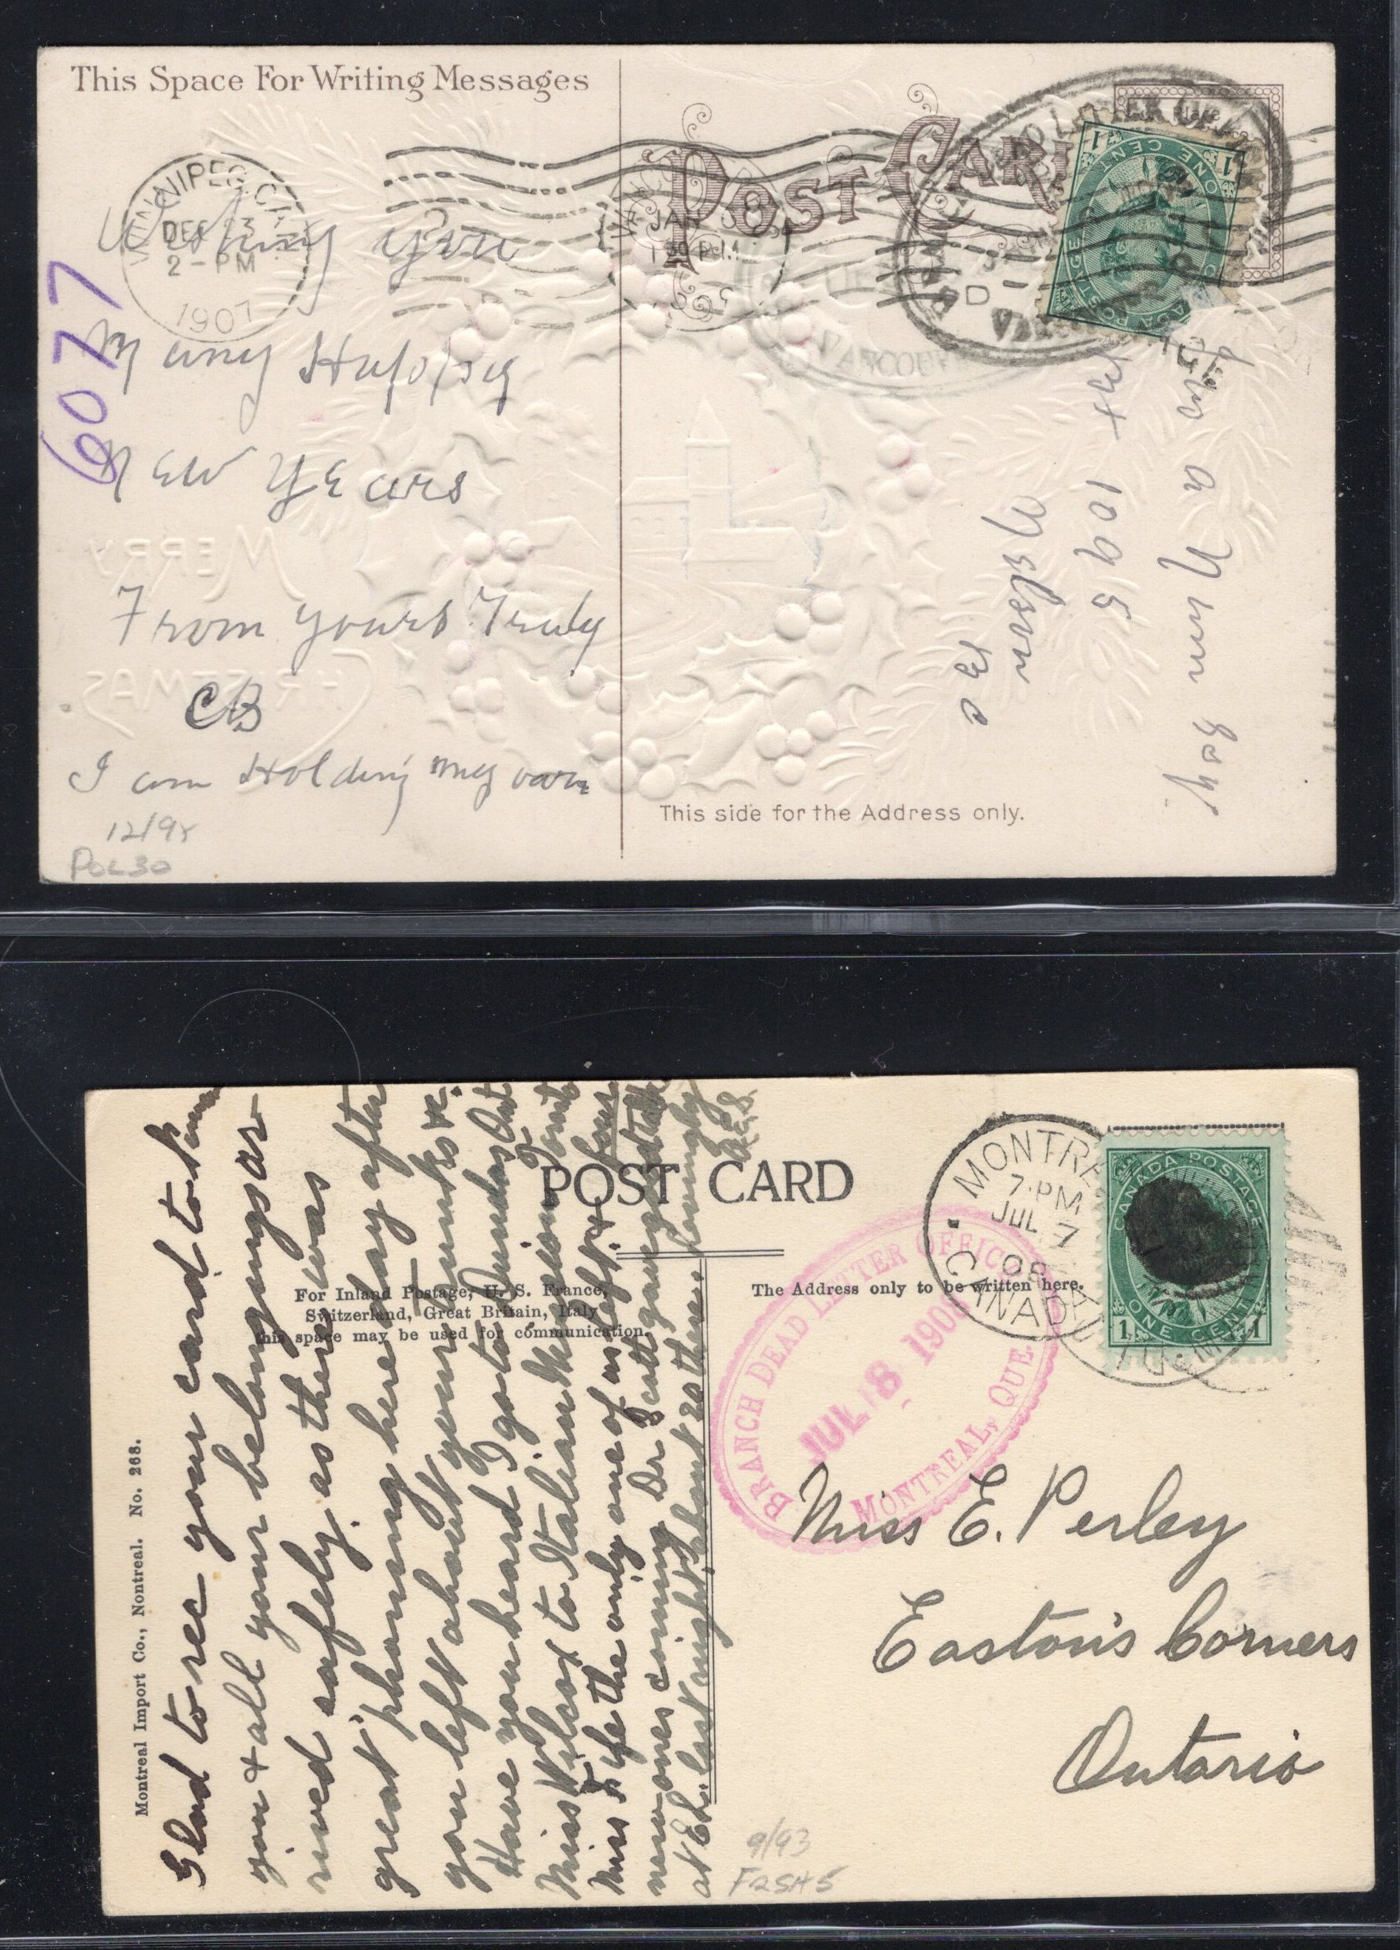 This Space For Writing Messages
POST CARD
WINNIPEG
DEC 13
2-PM
1907
JAN
PM
VANCOUVER
VICTORIA
CANADA POSTAGE
ONE CENT
1 1
6077
Wishing you
Many Happy
New Years
From yours Truly
CB
I am Holding my own
12/98
POL30
a Nunn Esq
1095
Nelson
BC
MERRY
CHRISTMAS
This side for the Address only.
POST CARD
For Inland Postage, U. S. France,
Switzerland, Great Britain, Italy
this space may be used for communication.
The Address only to be written here.
Montreal Import Co., Nontreal. No. 268.
MONTREAL
7-PM
JUL 7
08
CANADA
CANADA POSTAGE
1 ONE CENT 1
BRANCH DEAD LETTER OFFICE
JUL 8 1908
MONTREAL, QUE.
Miss E. Perley
Easton's Corners
Ontario
Glad to see your card to
you & all your belongings ar
rived safely, as there was
great 'phoning here they after
you left about your trunks &c.
Have you heard I go to Dundas, Ont
Miss Wilcox to Italian Mission Toronto
Miss Fyfe the only one of us left & four
new ones coming Dr Scott gave
at Ch. last night, about 20 there. Lovingly
9/93
F2SH5